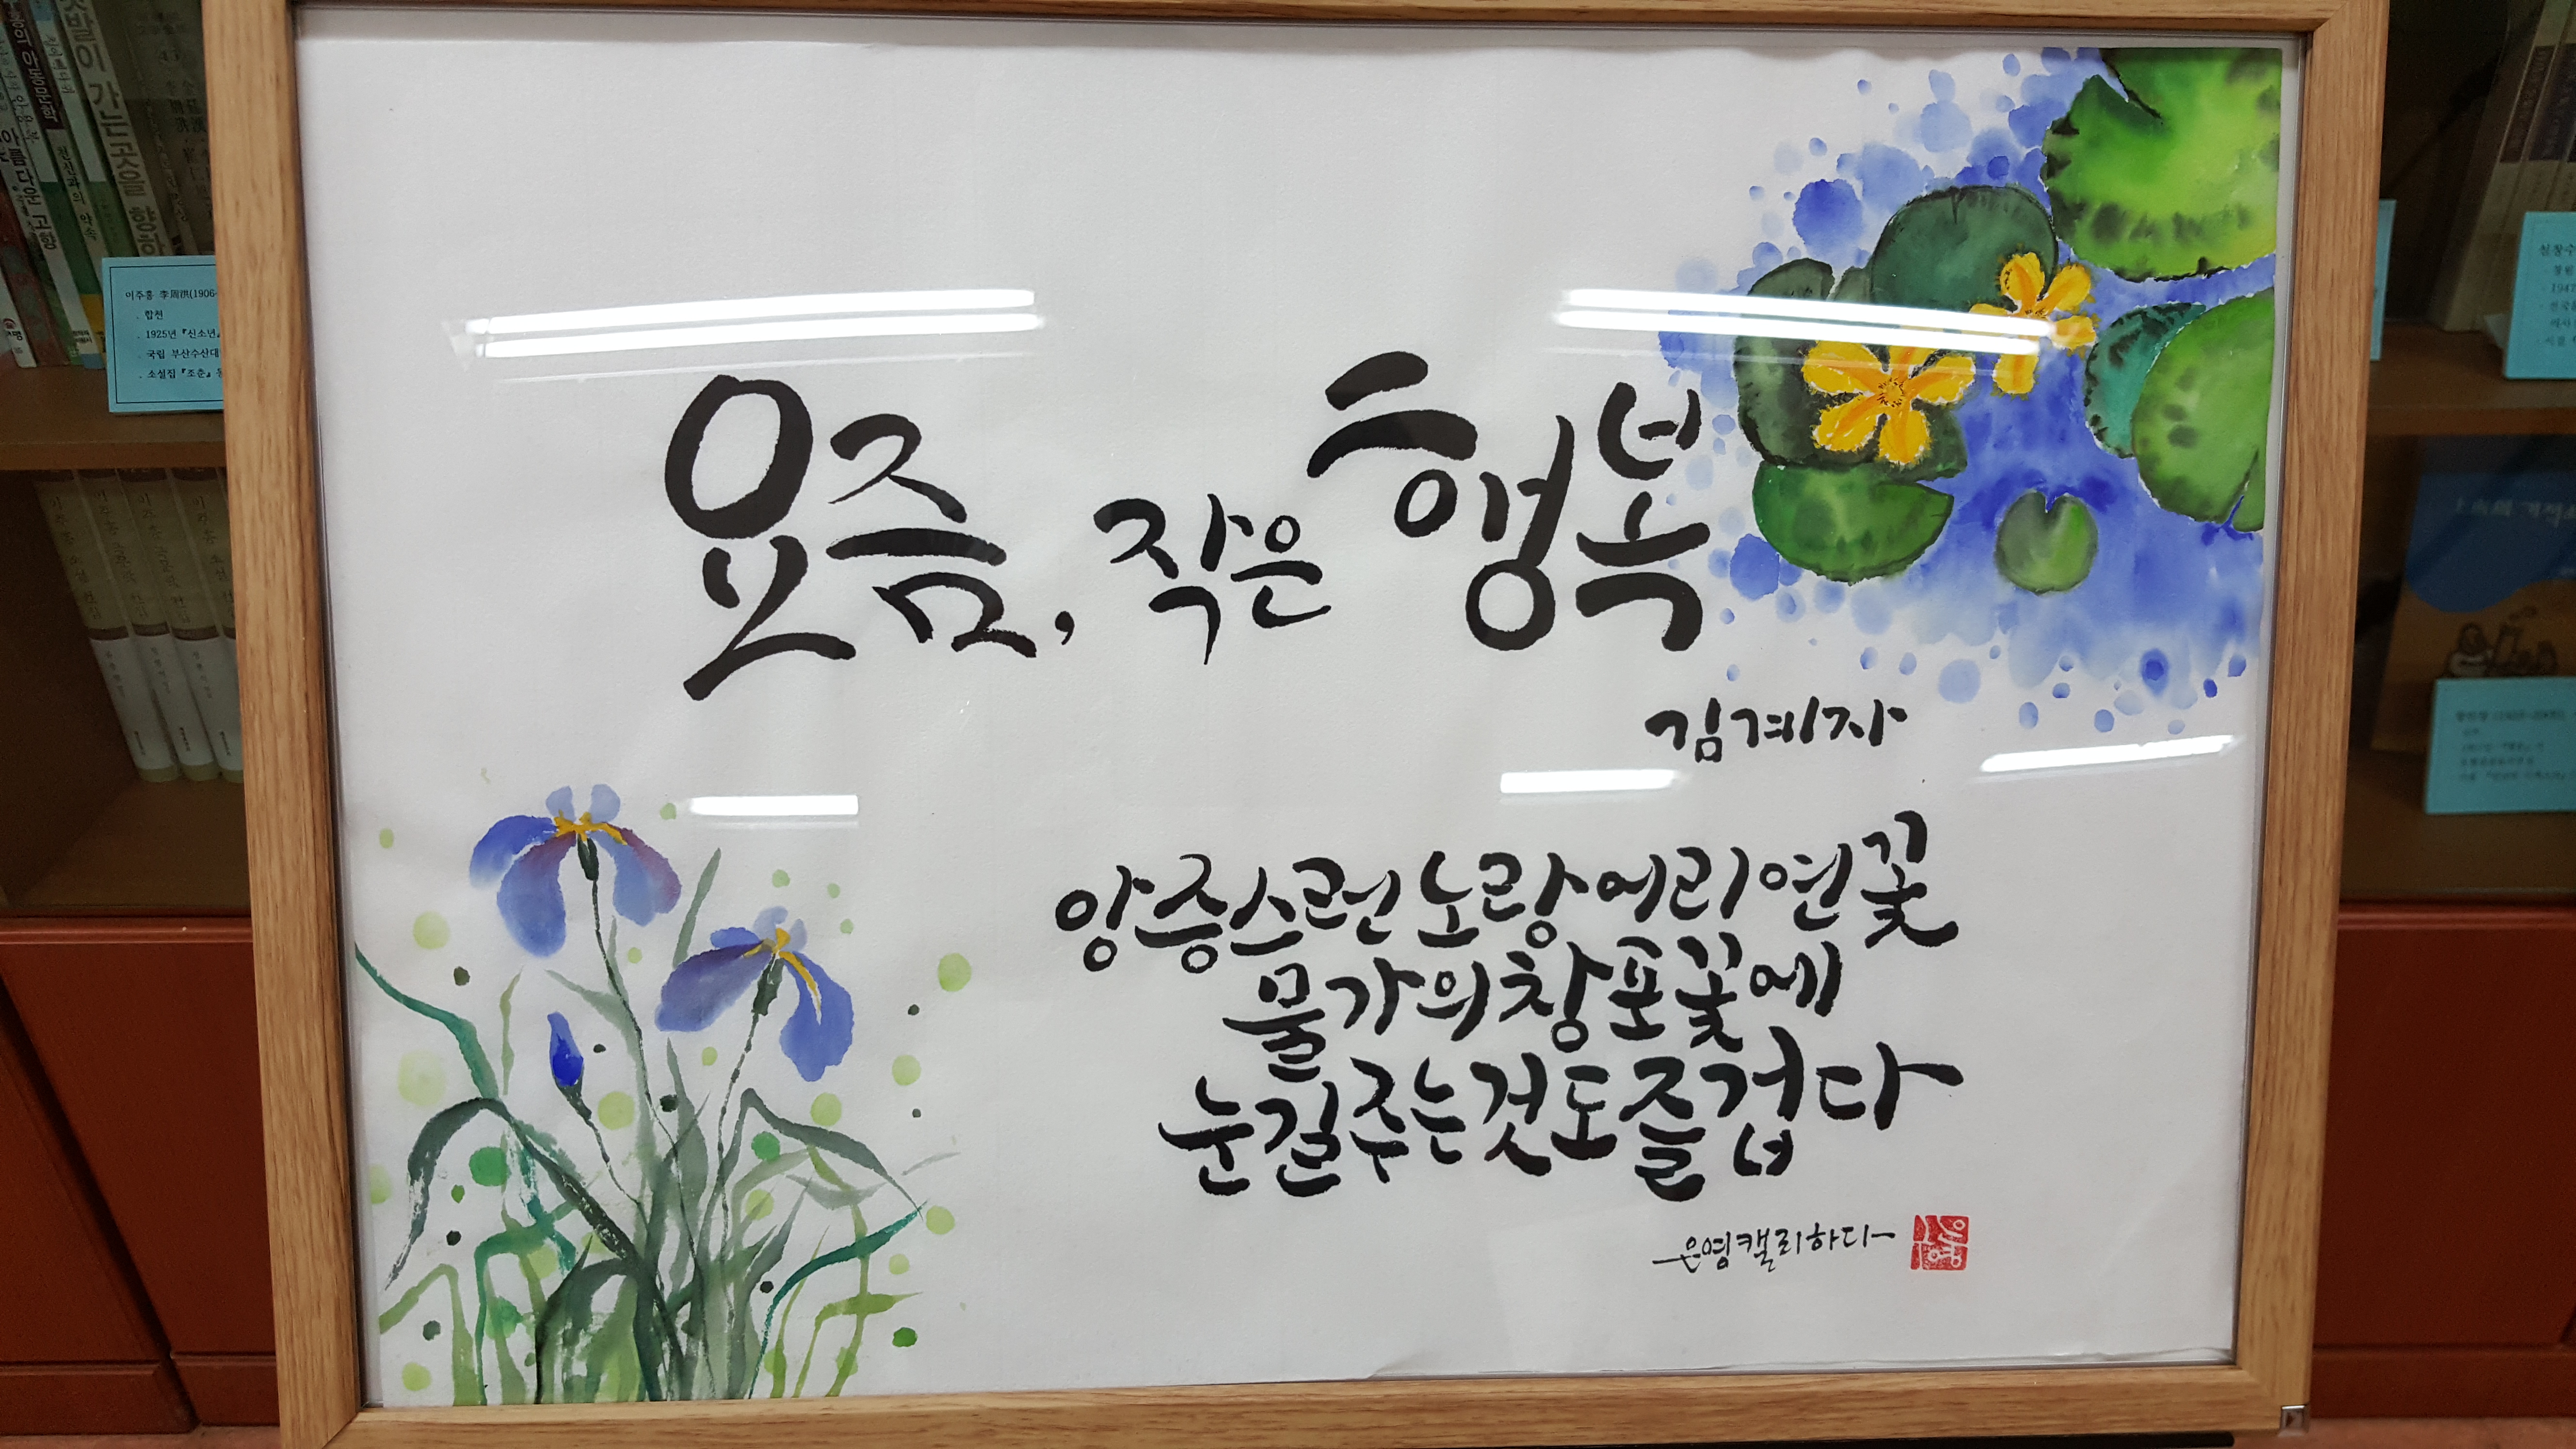 요즘, 작은 행복
김계자
앙증스런 노랑어리연꽃
물가의 창포꽃에
눈길 주는 것도 즐겁다
은영캘리하다
은영
이주홍 李周洪(1906-
. 합천
. 1925년 『신소년』
. 국립 부산수산대
. 소설집 『조춘』 등
아름다운 고향